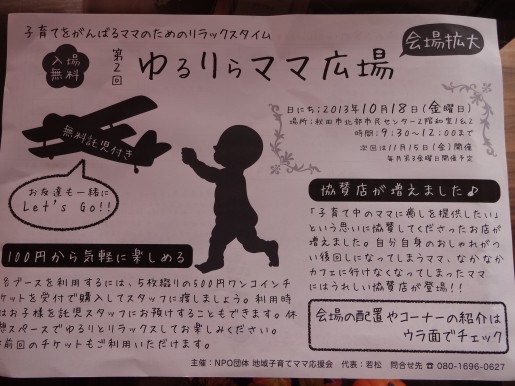 子育てをがんばるママのためのリラックスタイム
入場
無料
第2回
ゆるりらママ広場
会場拡大
日にち;2013年10月18日(金曜日)
場所;秋田市北部市民センター2階和室1&2
時間;9:30~12:00まで
次回は11月15日(金)開催
毎月第3金曜日開催予定
無料託児付き
お友達も一緒に
Let's Go!!
協賛店が増えました♪
「子育て中のママに癒しを提供したい」
という思いに協賛してくださったお店が
増えました。自分自身のおしゃれがつ
い後回しになってしまうママ、なかなか
カフェに行けなくなってしまったママ
にはうれしい協賛店が登場!!
100円から気軽に楽しめる
各ブースを利用するには、5枚綴りの500円ワンコインチ
ケットを受付で購入してスタッフに渡しましょう。利用時
はお子様を託児スタッフにお預けすることもできます。休
憩スペースでゆるりとリラックスしてお楽しみください。
前回のチケットもご利用いただけます。
会場の配置やコーナーの紹介は
ウラ面でチェック
主催:NPO団体 地域子育てママ応援会 代表:若松 問合せ先 ☎ 080-1696-0627